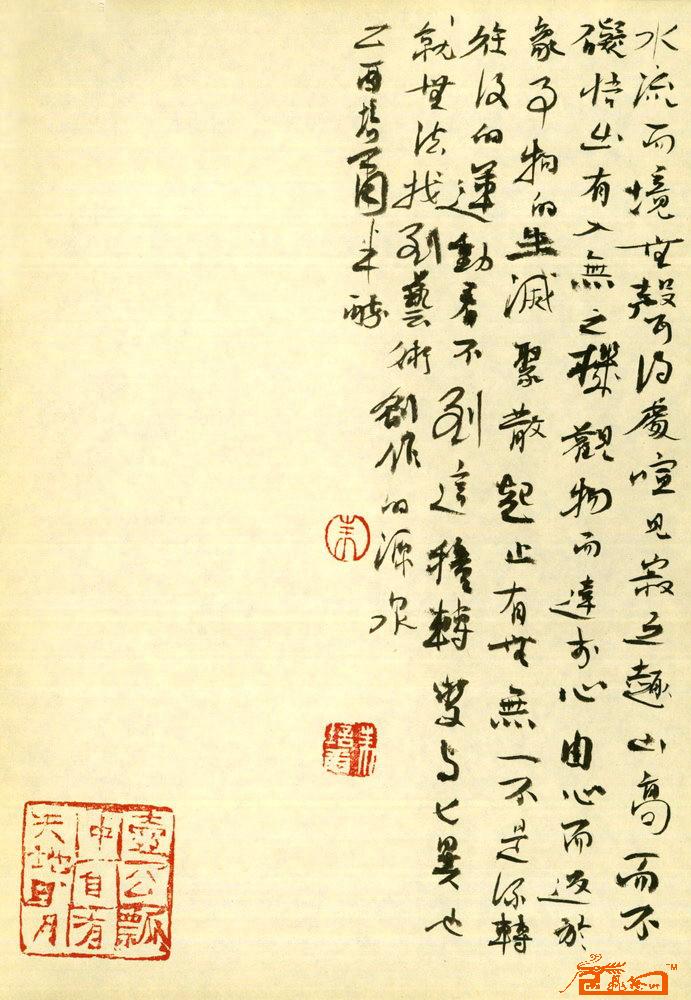 水流而境无聲得處喧見寂之趣山高而不
礙悟出有入無之機觀物而達于心由心而返於
象事物的生滅聚散起止有无無一不是流轉
往復的運動看不到這種轉變与異也
就無法找到藝術創作的源泉
乙酉培爾
朱
朱培爾
壺公瓢中自有天地日月